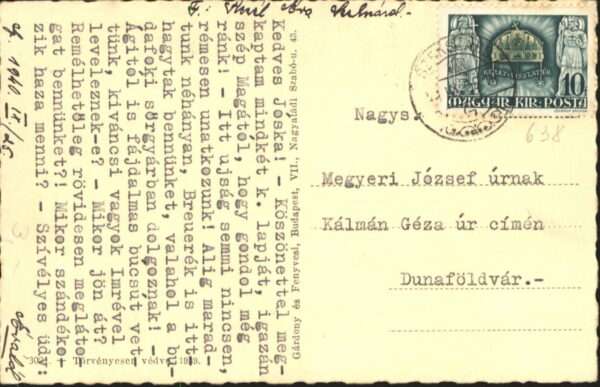 Kedves Joska! - Köszönettel meg-
kaptam mindkét k. lapját, igazán
szép Magától, hogy gondol még
ránk! - Itt ujság semmi nincsen,
rémesen unatkozunk! Alig marad-
tunk néhányan, Breuerék is itt
hagytak bennünket, valahol a bu-
dafoki sörgyárban dolgoznak! -
Ágitól is fájdalmas bucsut vet-
tünk, kiváncsi vagyok Imrével
leveleznek-e? - Mikor jön át?
Remélhetőleg rövidesen megláto-
gat bennünket?! Mikor szándéko-
zik haza menni? - Szívélyes üdv:
Gárdony és Fenyvesi, Budapest, VII., Nagyatádi Szabó-u. 43.
Törvényesen védve
F:
1940. IX/25
10
MAGYAR KIR. POSTA
638
Nagys.
Megyeri József úrnak
Kálmán Géza úr címén
Dunaföldvár.-